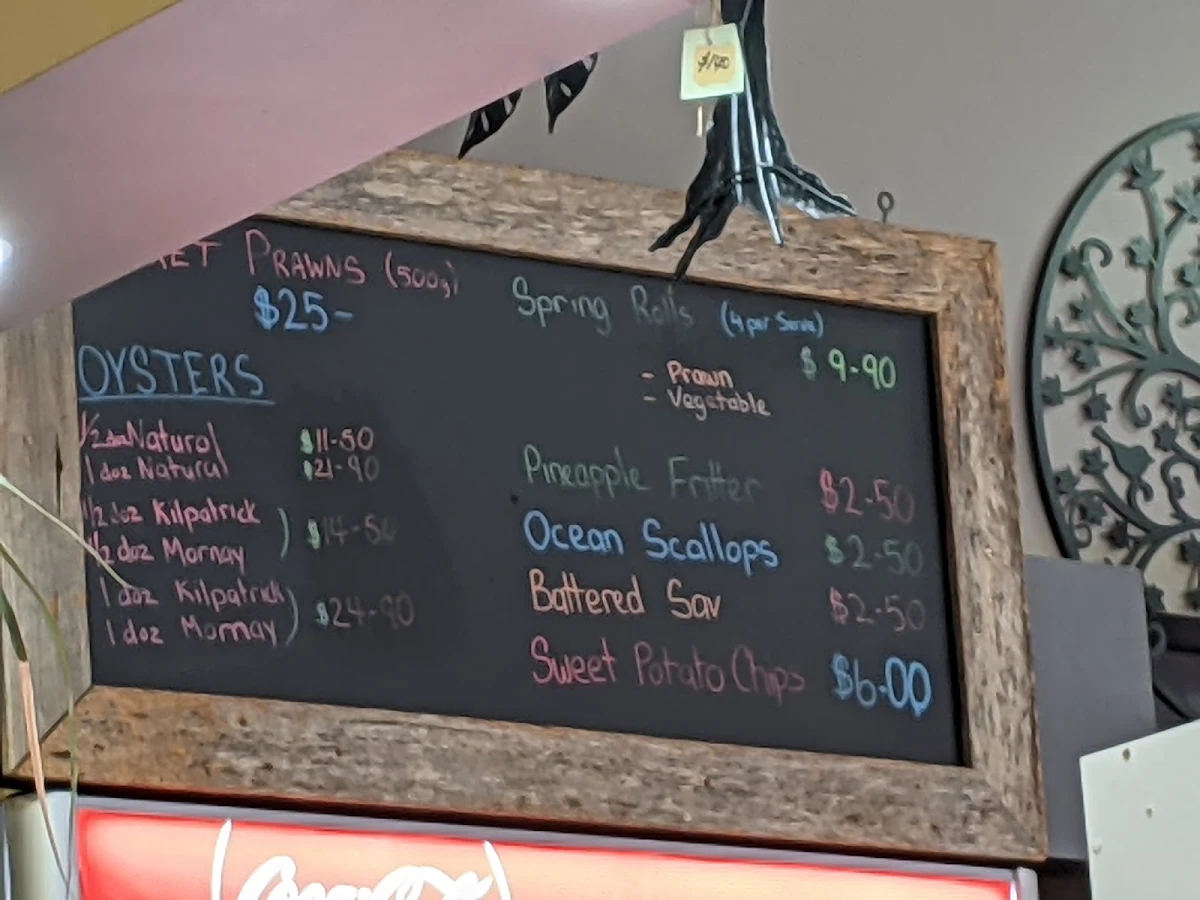 $140
PRAWNS (500g)
$25-
OYSTERS
1/2 doz Natural $11-50
1 doz Natural $21-90
1/2 doz Kilpatrick
1/2 doz Mornay ) $14-50
1 doz Kilpatrick
1 doz Mornay ) $24-90
Spring Rolls (4 per Serve)
$9-90
- Prawn
- Vegetable
Pineapple Fritter $2-50
Ocean Scallops $2-50
Battered Sav $2-50
Sweet Potato Chips $6-00